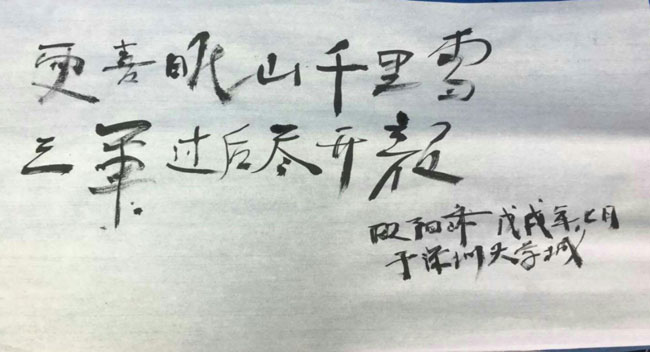 更喜眠山千里雪
三軍过后尽开颜
欧阳 戊戌年七月
于深圳大学城